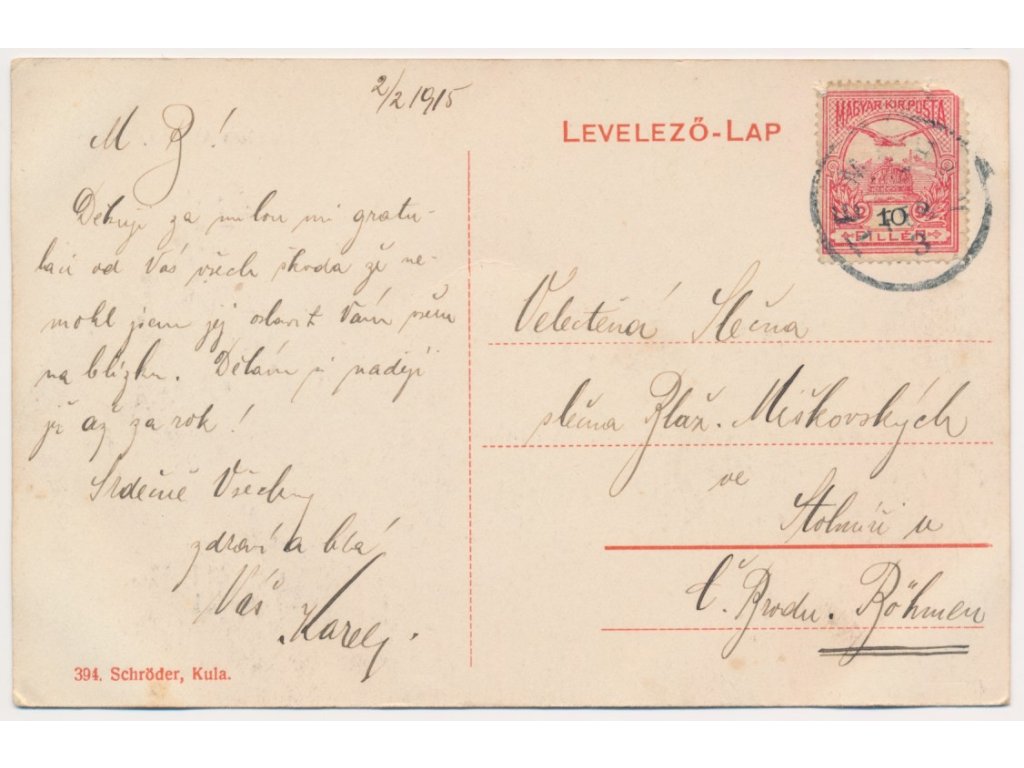 2/2 1915
M. B!
Děkuji za milou mi gratu-
laci od Vás všech škoda že ne-
mohl jsem jej oslavit Vám všem
na blízku. Dělám si naději
již až za rok!
Srdečně Všechny
zdraví a líbá
Váš
Karel.
394. Schröder, Kula.
LEVELEZŐ-LAP
MAGYAR KIR. POSTA
10
FILLÉR
Velectěná Slečna
slečna Blaž. Miškovských
ve
Štolmíři u
Č. Brodu. Böhmen